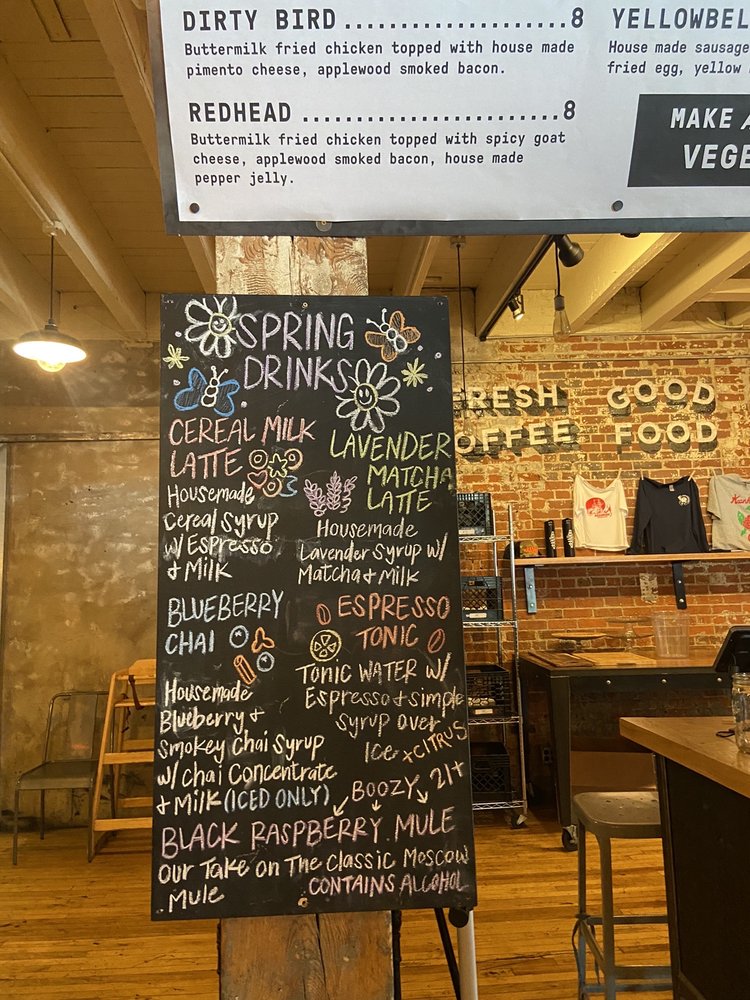 DIRTY BIRD.......................8
Buttermilk fried chicken topped with house made
pimento cheese, applewood smoked bacon.
REDHEAD.........................8
Buttermilk fried chicken topped with spicy goat
cheese, applewood smoked bacon, house made
pepper jelly.
House made sausage
fried egg, yellow
MAKE
SPRING
DRINKS
CEREAL MILK
LATTE
Housemade
Cereal Syrup
w/ Espresso
+ Milk
LAVENDER
MATCHA
LATTE
Housemade
Lavender Syrup w/
Matcha + Milk
BLUEBERRY
CHAI
Housemade
Blueberry +
Smokey Chai Syrup
w/ Chai Concentrate
+ Milk (ICED ONLY)
ESPRESSO
TONIC
TONIC WATER w/
Espresso + simple
syrup over
Ice + CITRUS
BOOZY 21+
BLACK RASPBERRY MULE
Our Take on The Classic Moscow
Mule
CONTAINS ALCOHOL
FRESH GOOD
COFFEE FOOD